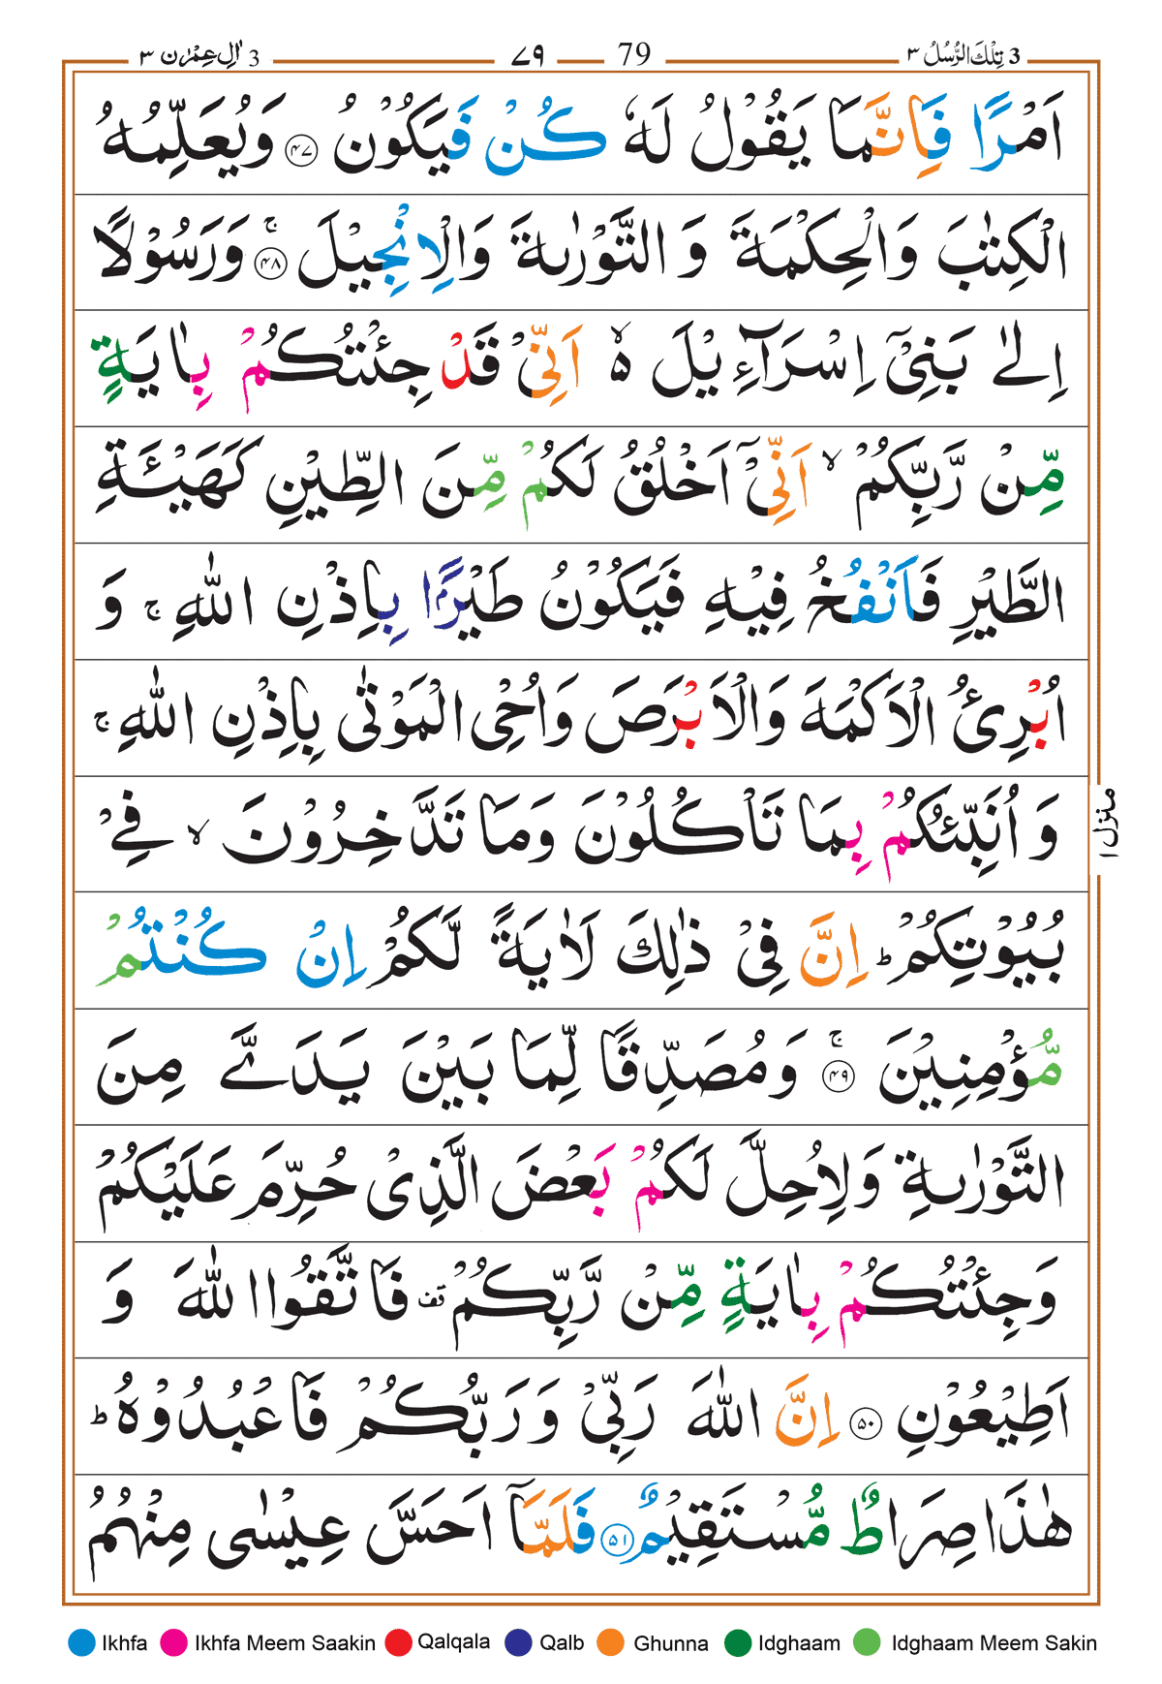 3 اٰلِ عِمْرٰن ٣ ٧٩ 79 3 تِلْكَ الرُّسُلُ ٣
اَمْرًا فَاِنَّمَا يَقُوْلُ لَهٗ كُنْ فَيَكُوْنُ ﴿٤٧﴾ وَيُعَلِّمُهُ
الْكِتٰبَ وَالْحِكْمَةَ وَ التَّوْرٰىةَ وَالْاِنْجِيْلَ ﴿٤٨﴾ۚ وَرَسُوْلًا
اِلٰى بَنِىْٓ اِسْرَآءِيْلَ ۙ۬ اَنِّىْ قَدْ جِئْتُكُمْ بِاٰيَةٍ
مِّنْ رَّبِّكُمْ ۙ اَنِّىْٓ اَخْلُقُ لَكُمْ مِّنَ الطِّيْنِ كَهَيْــَٔةِ
الطَّيْرِ فَاَنْفُخُ فِيْهِ فَيَكُوْنُ طَيْرًۢا بِاِذْنِ اللّٰهِ ۚ وَ
اُبْرِئُ الْاَكْمَهَ وَالْاَبْرَصَ وَاُحْىِ الْمَوْتٰى بِاِذْنِ اللّٰهِ ۚ
وَ اُنَبِّئُكُمْ بِمَا تَاْكُلُوْنَ وَمَا تَدَّخِرُوْنَ ۙ فِىْ
بُيُوْتِكُمْ ؕ اِنَّ فِىْ ذٰلِكَ لَاٰيَةً لَّكُمْ اِنْ كُنْتُمْ
مُّؤْمِنِيْنَ ﴿٤٩﴾ۚ وَمُصَدِّقًا لِّمَا بَيْنَ يَدَىَّ مِنَ
التَّوْرٰىةِ وَلِاُحِلَّ لَكُمْ بَعْضَ الَّذِىْ حُرِّمَ عَلَيْكُمْ
وَجِئْتُكُمْ بِاٰيَةٍ مِّنْ رَّبِّكُمْ قف فَاتَّقُوا اللّٰهَ وَ
اَطِيْعُوْنِ ﴿٥٠﴾ اِنَّ اللّٰهَ رَبِّىْ وَرَبُّكُمْ فَاعْبُدُوْهُ ؕ
هٰذَا صِرَاطٌ مُّسْتَقِيْمٌ ﴿٥١﴾ فَلَمَّآ اَحَسَّ عِيْسٰى مِنْهُمُ
منزل ١
Ikhfa Ikhfa Meem Saakin Qalqala Qalb Ghunna Idghaam Idghaam Meem Sakin